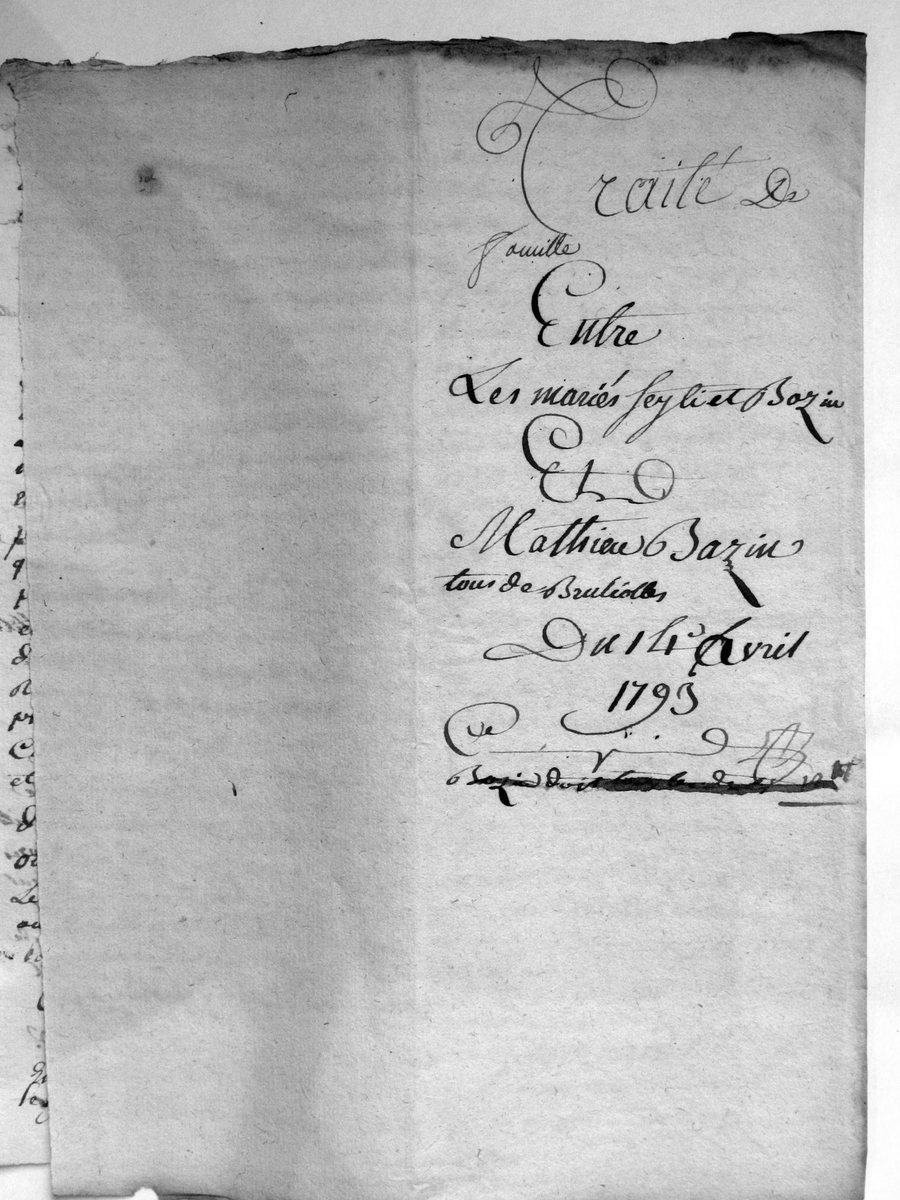 Traité De
famille
Entre
Les mariés feyli et Bazin
Et
Mathieu Bazin
tous de Brulioles
Du 14e Avril
1793
Bazin doit